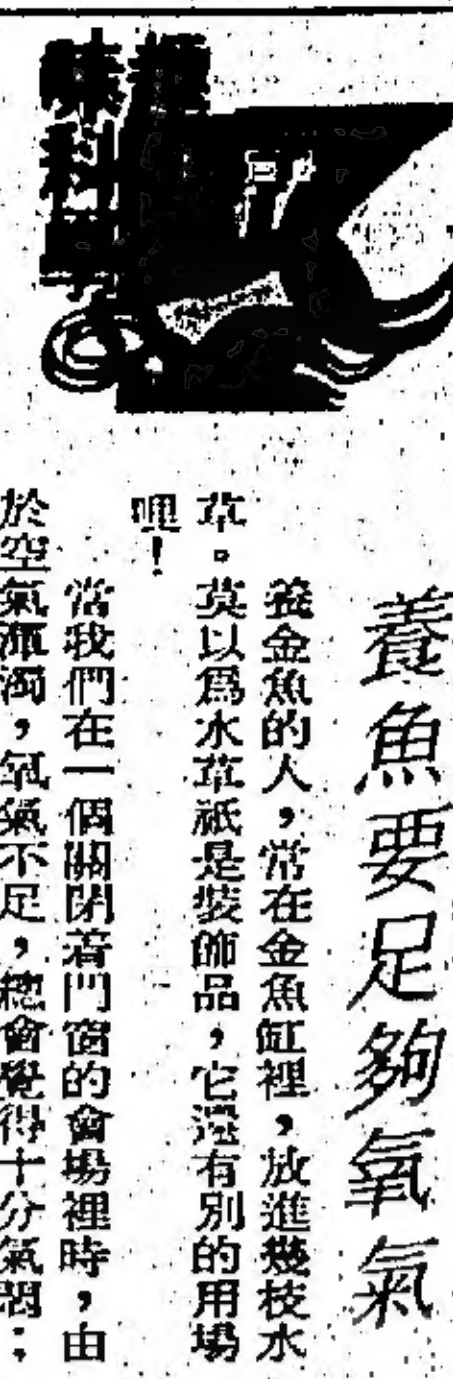 趣味科學
養魚要足夠氧氣
養金魚的人，常在金魚缸裡，放進幾枝水
草。莫以爲水草祇是裝飾品，它還有別的用場
哩！
當我們在一個關閉着門窗的會場裡時，由
於空氣渾濁，氧氣不足，總會覺得十分氣悶；